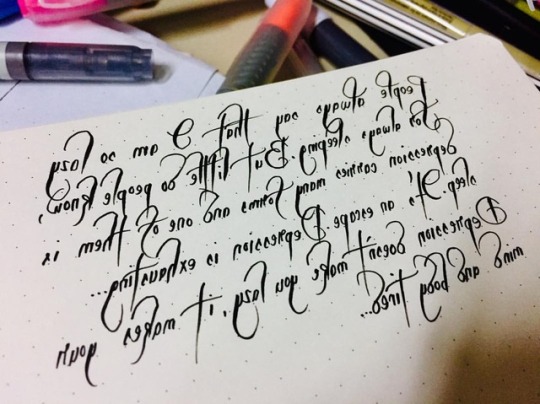 People always say that I am so lazy
for always sleeping. But little do people know,
depression carries many forms and one of them is
sleep. It's an escape. Depression is exhausting...
Depression doesn't make you lazy, it makes your
mind and body tired...